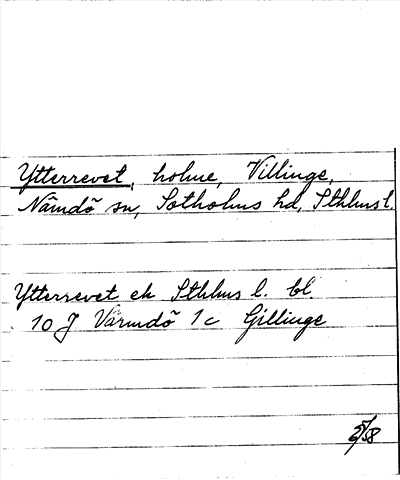 Ytterrevet, holme, Villinge,
Nämdö sn, Sotholms hd, Sthlms l.
Ytterrevet ek Sthlms l. bl.
10 J Värmdö 1c Gillinge